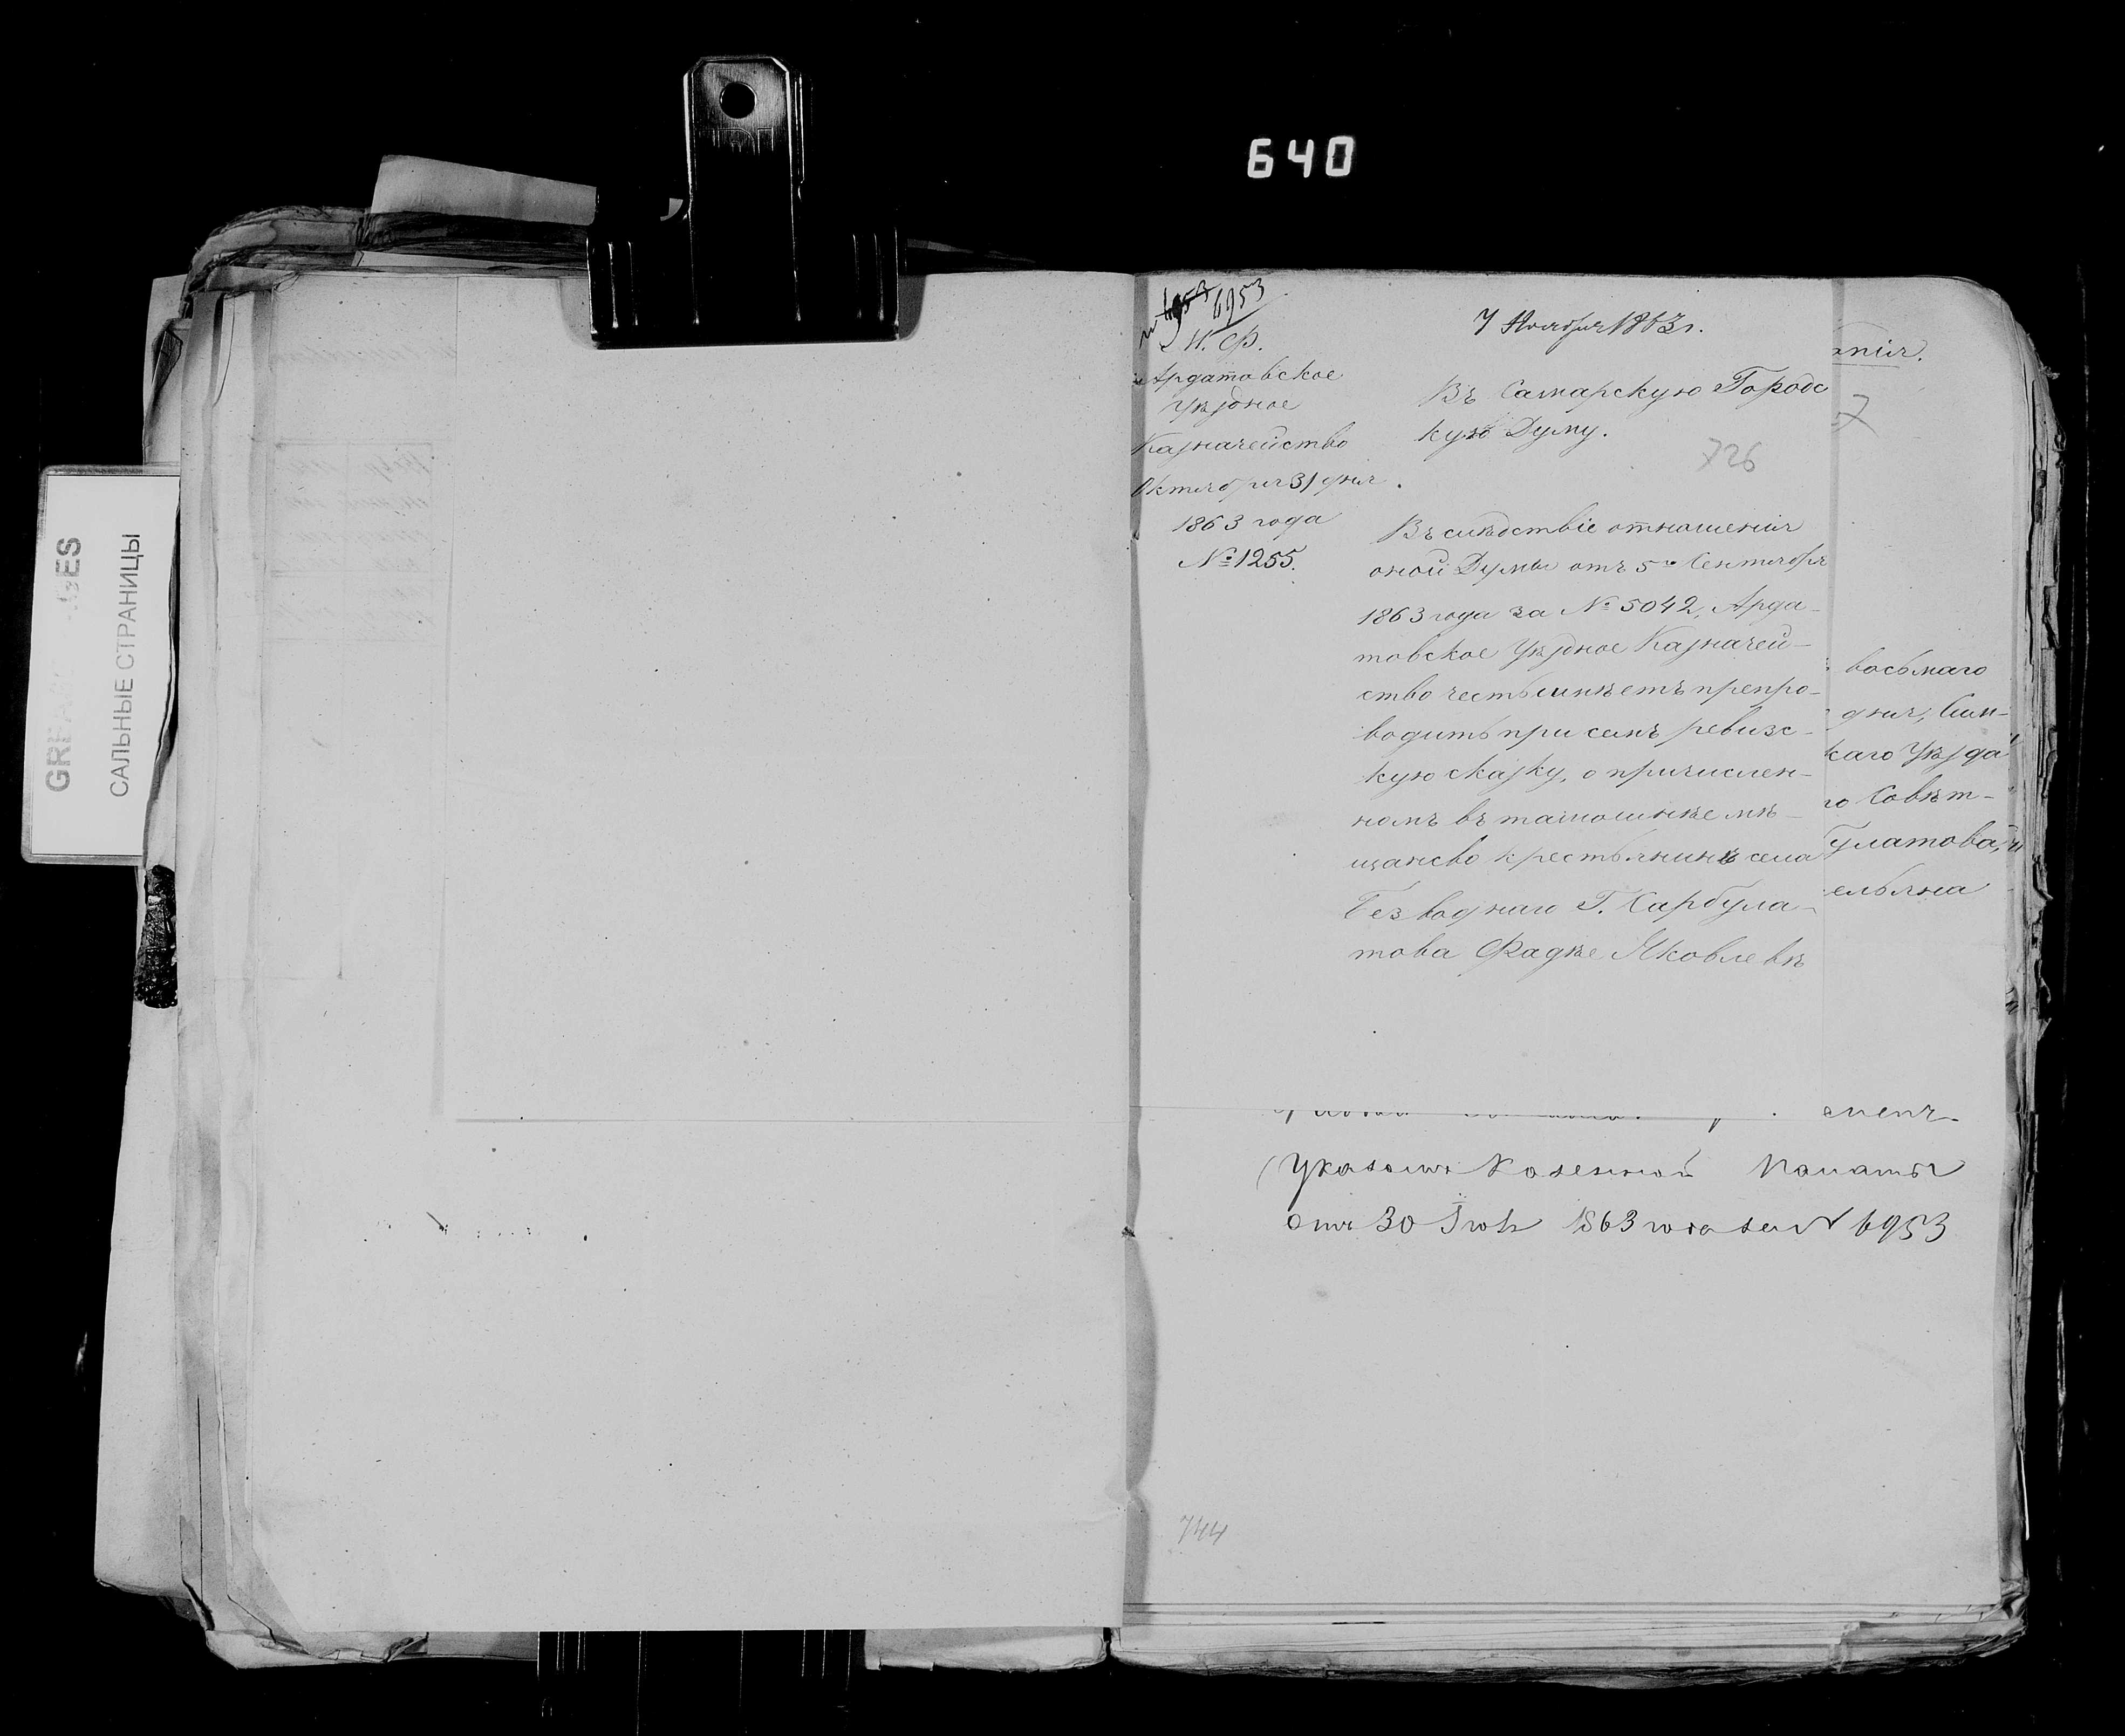 640
GREASY PAGES
САЛЬНЫЕ СТРАНИЦЫ
6953 6953
И. Ф.
Ардатовское
Уѣздное
Казначейство
Октября 31 дня.
1863 года
№ 1255.
7 Ноября 1863 г.
Въ Самарскую Городс
кую Думу.
726
Въ слѣдствіе отношенія
оной Думы отъ 5го Сентября
1863 года за № 5042, Арда-
товское Уѣздное Казначей-
ство честь имѣетъ препро-
водить при семъ ревизс-
кую сказку, о причислен-
номъ въ тамошнѣе мѣ-
щансво крестьянинѣ села
Безводнаго Г. Сарбула-
това Фадѣе Яковлевѣ
анія.
7
восьмаго
дня, Сим-
каго Уѣзда
го Совѣт-
булатова, и
ельяна
Указомъ Казенной Палаты
отъ 30 1863 года за № 6953
744